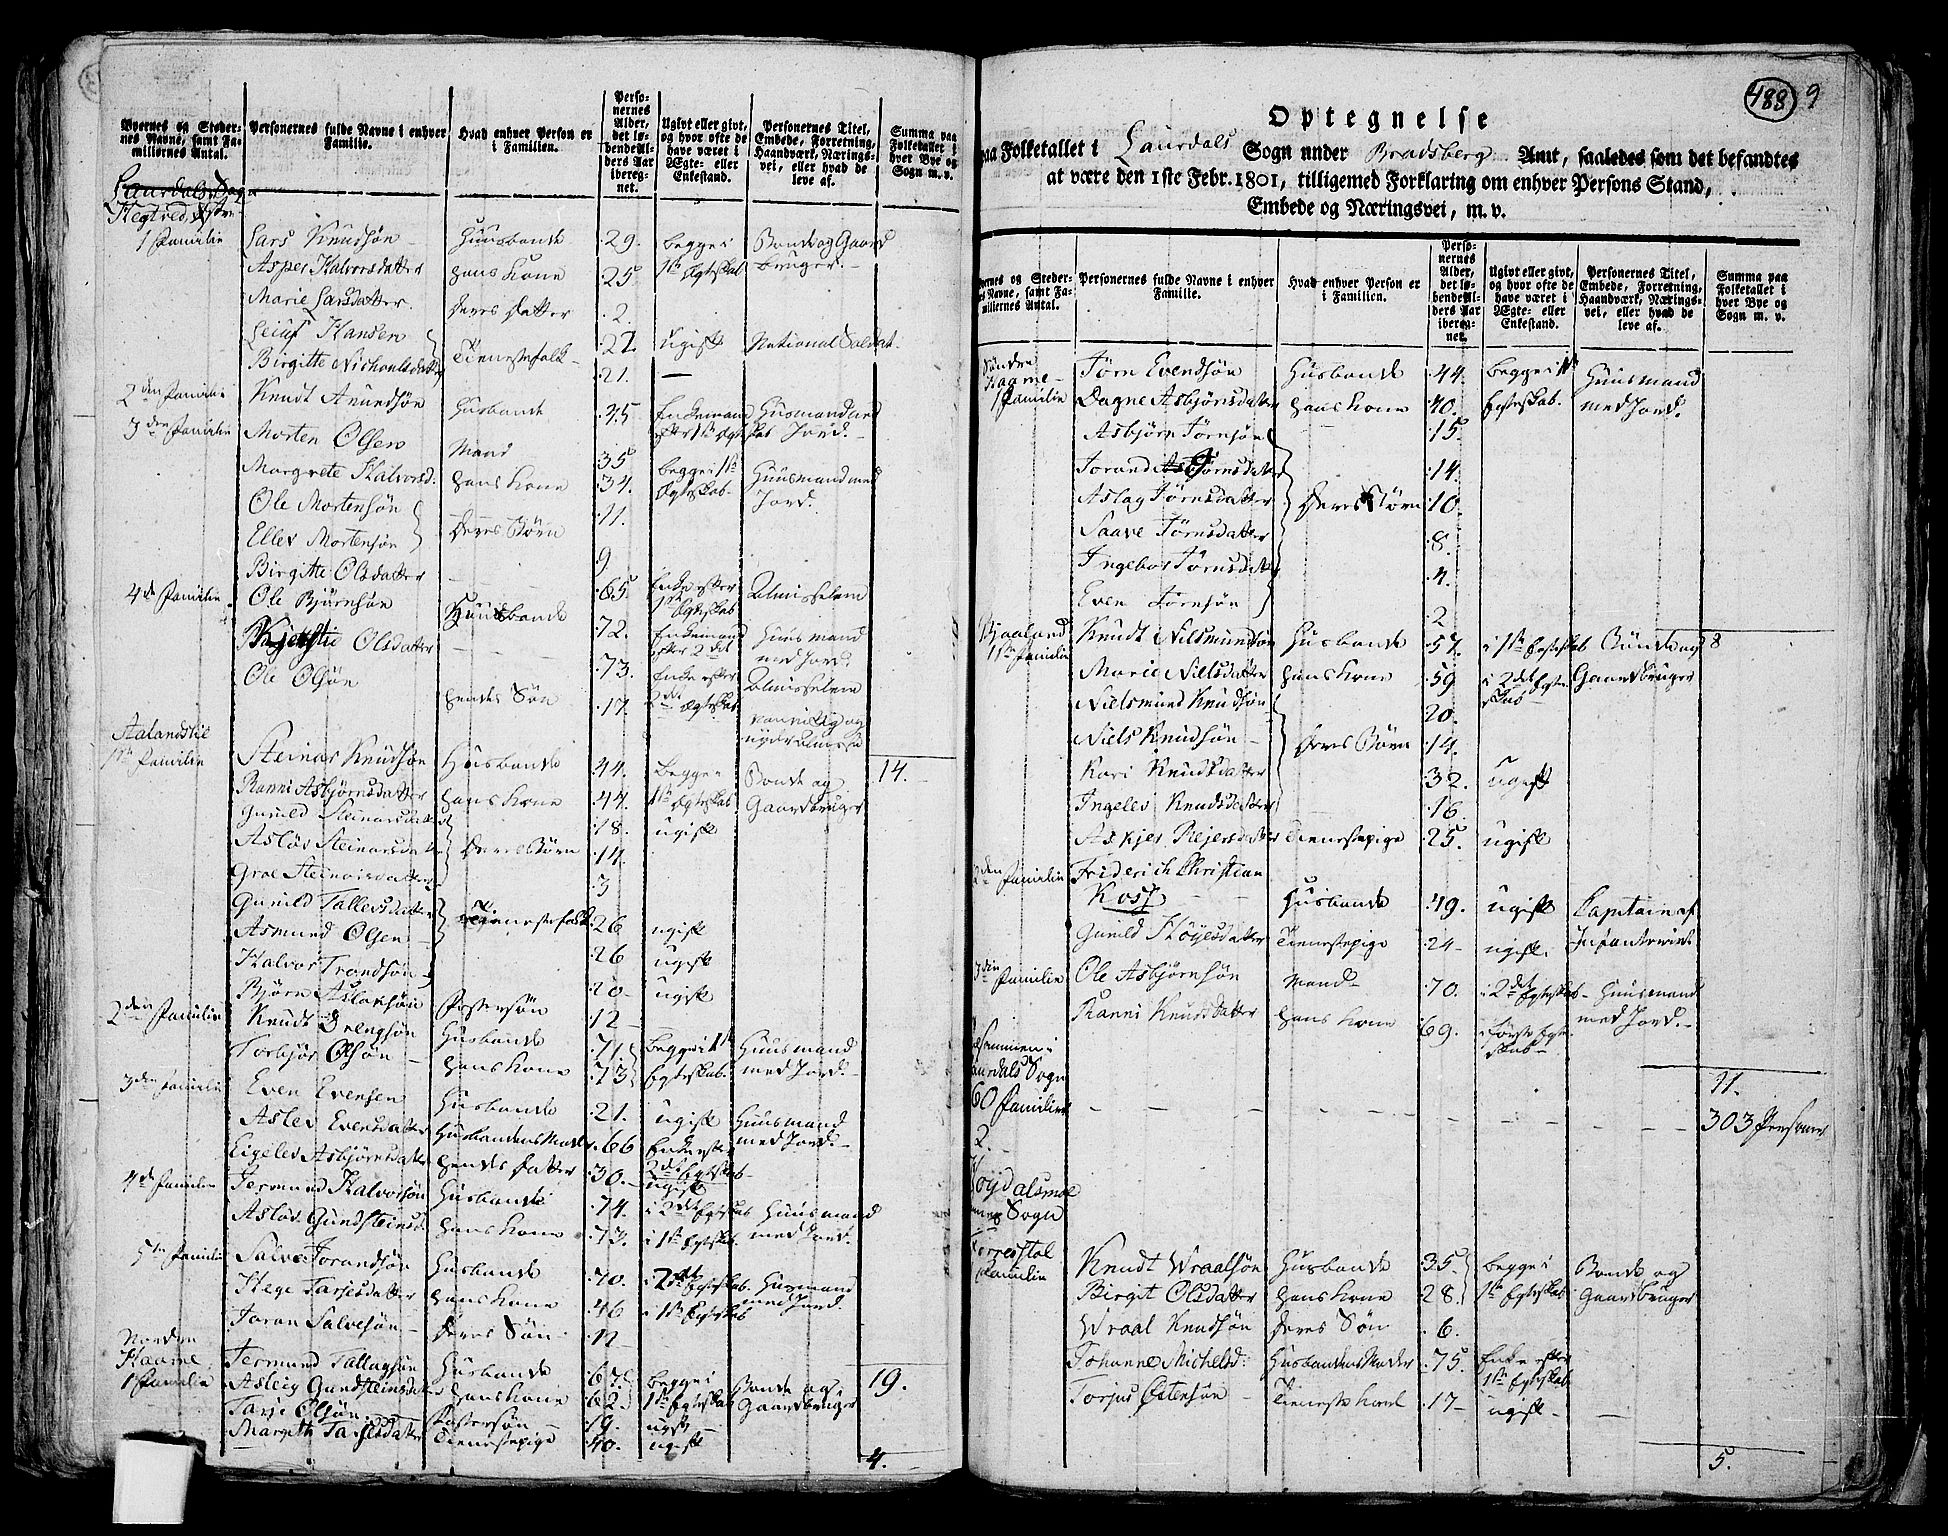 Byernes og Steder-
nes Navne, samt Fa-
miliernes Antal.
Personernes fulde Navne i enhver
Familie.
Hvad enhver Person er
i Familien.
Perso-
nernes
Alder,
det lø-
bende Al-
ders Aar
ibereg-
net.
Ugivt eller givt,
og hvor ofte de
have været i
Ægte- eller
Enkestand.
Personernes Titel,
Embede, Forretning,
Haandværk, Nærings-
vei, eller hvad de
leve af.
Summa paa
Folketallet i
hver Bye og
Sogn m. v.
Laurdals Sogn
1 Familie Lars Knudsøn Huusbonde 29. begge i Bonde og Gaard
Asper Halvorsdatter hans Kone 25 1ste Egteskab bruger.
Marie Larsdatter. Deres Datter 2.
Hansen 27. ugift National Soldat
Birgitte Tienestefolk 21. —
2den Familie Knudt Anundsøn Husbonde 45 Enkemand Husmand
3den Familie Morten Olsen Mand 35 begge i 1ste Huusmand med
Margrete Halvorsd. hans Kone 34. Egteskab. Jord.
Ole Mortensøn Deres Børn 11.
Ellev Mortensøn 9
Birgitte Olsdatter 65 Enke efter Almisselem
1ste Egteskab
4de Familie Ole Bjørnsøn Huusbonde 72. Enkemand Huusmand
efter 2det med Jord.
Olsdatter 73. Enke efter Almisselem
Ole Olsøn hendes Søn 17. 2det Egteskab vanvittig og
nyder Almisse
14.
1ste Familie Steinar Knudsøn Husbonde 44. Begge i Bonde og
Ranni Asbjørnsdatter hans Kone 44. 1ste Egteskab Gaardbruger
Gunild Steinarsdatter 18. ugift
Asløv Steinarsdatter Deres Børn 14.
Groe Steinarsdatter 3
Gunild Tallevsdatter Tienestefolk 26 ugift
Asmund Olsen 26 ugift
Halvor Trondsøn 20 ugift
Bjørn Aslaksøn Fostersøn 12
2den Familie Knudt Husbonde 71. begge i 1ste Huusmand
Torbjør Olsøn hans Kone 73 Egteskab. med Jord.
3den Familie Even Evensen Husbonde 21. ugift Huusmand
Aslev Evensdatter Husbondens Moder 66 Enke efter med Jord.
2det Egteskab
Eigelev Asbjørnsdatter hendes Datter 30. ugift
4de Familie Jermund Halvorsøn Husbonde 74. i 2det Egteskab Huusmand
Asløv Gundsteinsd. hans Kone 73. i 1ste Egteskab. med Jord.
5te Familie Salve Torandsøn Husbonde 70. i 2det Egteskab. Husmand
Hege Tarjesdatter hans Kone 46 i 1ste Egteskab med Jord.
Toran Salvesøn Deres Søn 12
19.
Norden
Haarne
1 Familie Jermund Tallagsøn Husbonde 67. begge i Bonde og
Asleig Gundsteinsdatter hans Kone 62. 1ste Egteskab Gaardbruger
Tarje Olsøn Fostersøn 19. ugift
Margith Tarjesdatter Tienestepige 40. ugift
4.
488 9
Optegnelse
paa Folketallet i Laurdals Sogn under Bradsberg Amt, saaledes som det befandtes
at være den 1ste Febr. 1801, tilligemed Forklaring om enhver Persons Stand,
Embede og Næringsvei, m. v.
Personernes fulde Navne i enhver
Familie.
Hvad enhver Person er
i Familien.
Perso-
nernes
Alder,
det lø-
bende Al-
ders Aar
ibereg-
net.
Ugivt eller givt,
og hvor ofte de
have været i
Ægte- eller
Enkestand.
Personernes Titel,
Embede, Forretning,
Haandværk, Nærings-
vei, eller hvad de
leve af.
Summa paa
Folketallet i
hver Bye og
Sogn m. v.
Søndre
Haarne
1 Familie Tørn Evendsøn Husbonde 44. begge i 1ste Huusmand
Dagne Asbjørnsdatter hans Kone 40. Egteskab. med Jord.
Asbjørn Tørnsøn 15.
Torand Tørnsdatter 14.
Aslag Tørnsdatter Deres Børn 10.
Saave Tørnsdatter 8.
Ingebor Tørnsdatter 4.
Even Tørnsøn 2
8
Bjaaland
1ste Familie Knudt Nielsmundsøn Husbonde 57. i 1ste Egteskab Bonde og
Marie Nielsdatter hans Kone 59 i 2det Egte- Gaardbruger
skab
Nielsmund Knudsøn 20.
Niels Knudsøn Deres Børn 14.
Kari Knudsdatter 32. ugift
Ingelev Knudsdatter 16.
Askjer Rejersdatter Tienestepige 25. ugift
2den Familie Friderich Christian
Kosf Husbonde 49. ugift Capitain af
Gunild Høyesdatter Tienestepige 24 ugift. Infanteriet
3die Familie Ole Asbjørnsøn Mand 70. i 2det Egteskab Huusmand
Ranni Knudsdatter hans Kone 69. i første Egte- med Jord.
skab
11.
Laurdals Sogn
60 Familier 303 Personer
2.
Høydalsmoe
Sogn
Familie Knudt Wraalsøn Husbonde 35 begge i Bonde og
Birgit Olsdatter hans Kone 28. 1ste Egteskab Gaardbruger
Wraal Knudsøn Deres Søn 6.
Johanne Michelsd. Husbondens Moder 75. Enke efter
1ste Egteskab
Torjus Østensøn Tieneste Karl 17 ugift
5.